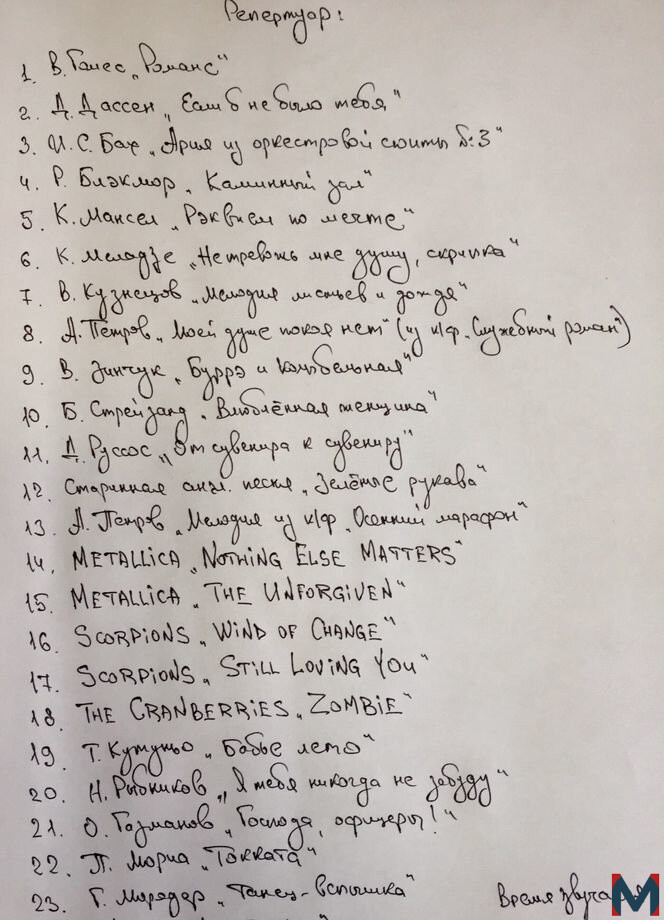 Репертуар:
1. В. Гомес „Романс"
2. Д. Дассен „Если б не было тебя"
3. И.С. Бах „Ария из оркестровой сюиты №3"
4. Р. Блэкмор „Каминный зал"
5. К. Мансел „Рэквием по мечте"
6. К. Меладзе „Не тревожь мне душу, скрипка"
7. В. Кузнецов „Мелодия листьев и дождя"
8. А. Петров „Моей душе покоя нет" (из к/ф „Служебный роман")
9. В. Зинчук „Буррэ и Колыбельная"
10. Б. Стрейзанд „Влюблённая женщина"
11. Д. Руссос „От сувенира к сувениру"
12. Старинная англ. песня „Зелёные рукава"
13. А. Петров „Мелодия из к/ф „Осенний марафон"
14. METALLICA „NOTHING ELSE MATTERS"
15. METALLICA „THE UNFORGIVEN"
16. SCORPIONS „WIND OF CHANGE"
17. SCORPIONS „STILL LOVING YOU"
18. THE CRANBERRIES „ZOMBIE"
19. Т. Кутуньо „Бабье лето"
20. Н. Рыбников „Я тебя никогда не забуду"
21. О. Газманов „Господа, офицеры!"
22. П. Мориа „Токката"
23. Г. Мирядер „Танец-вспышка" Время
M